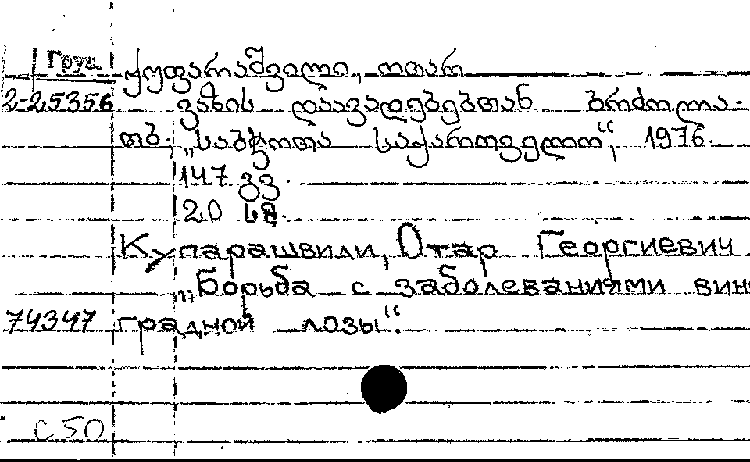 Груз.
ყუფარაშვილი, ოთარ
2-25356 ვაზის დაავადებებთან ბრძოლა.
თბ. „საბჭოთა საქართველო“, 1976.
147 გვ.
20 სმ.
Купарашвили, Отар Георгиевич
„Борьба с заболеваниями вино
74347 градной лозы“.
с 50